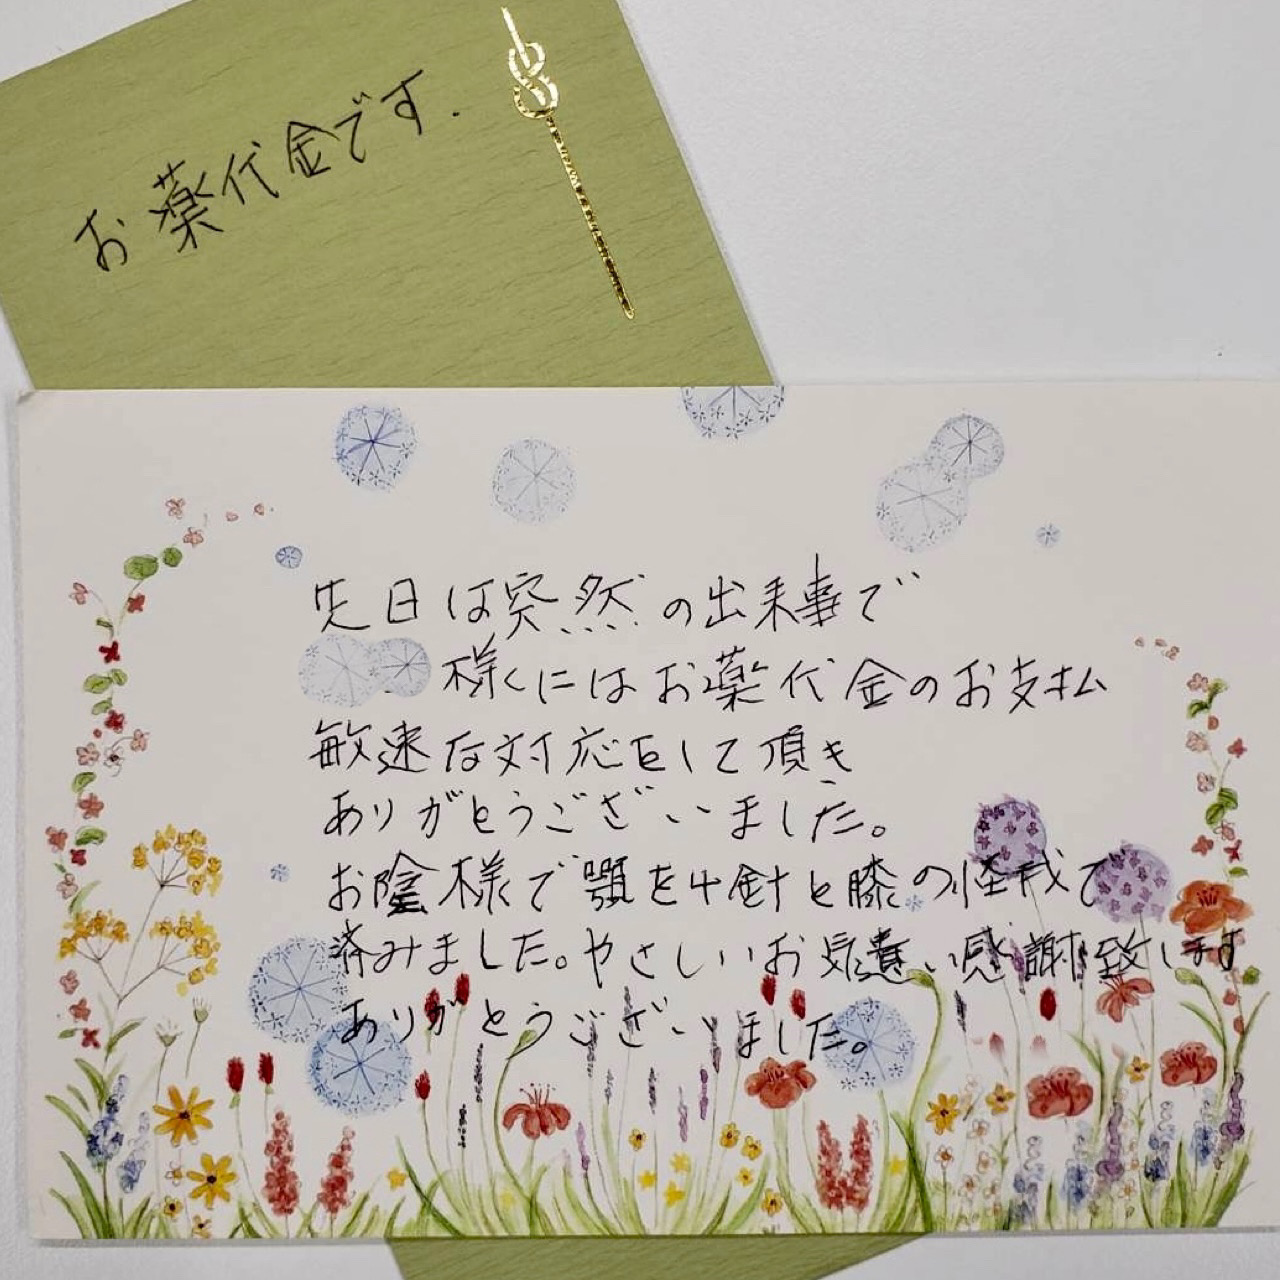 お薬代金です.
先日は突然の出来事で
様にはお薬代金のお支払
敏速な対応をして頂き
ありがとうございました。
お陰様で顎を4針と膝の怪我で
済みました。やさしいお気遣い感謝致します
ありがとうございました。